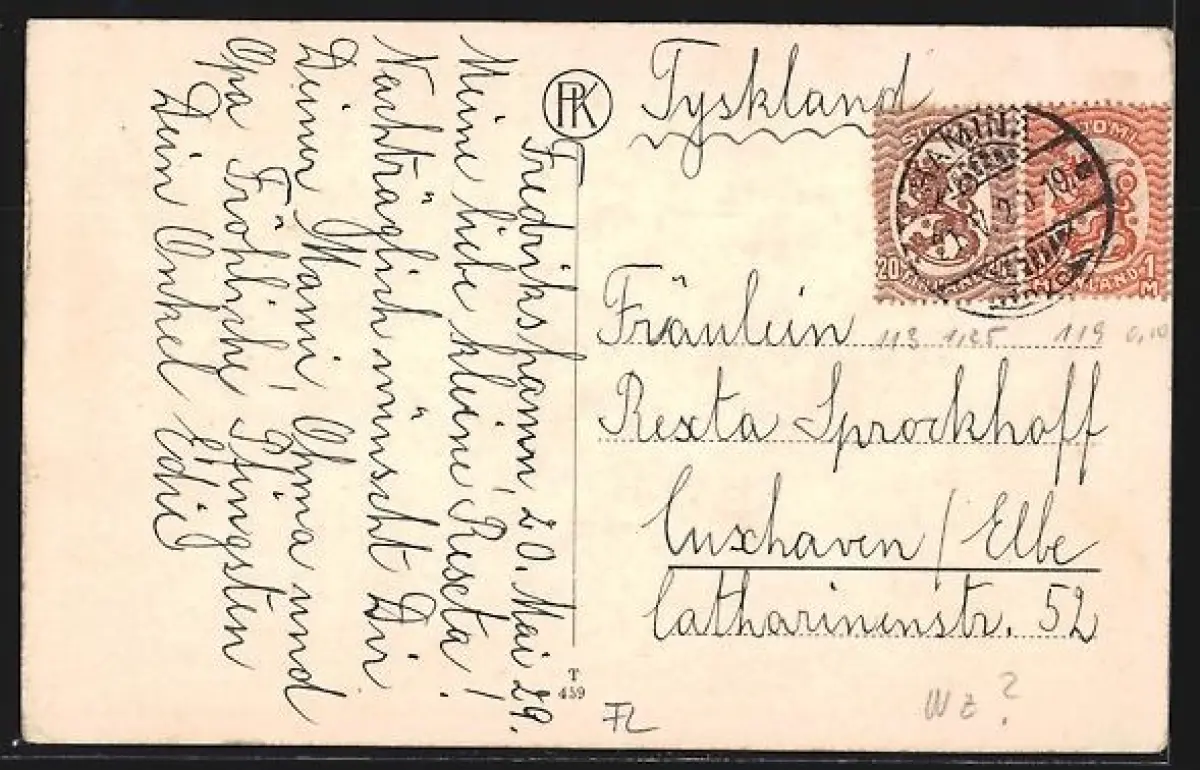 Fredrikshamn, 20. Mai 29.
Meine liebe kleine Rexta!
Nachträglich wünscht Dir
Deiner Mammi, Ohma und
Opa Fröhliche Pfingsten
Dein Onkel Edie
PK
Tyskland
SUOMI
20
SUOMI
FINLAND 1
M
Fräulein
113 1,25 119 0,10
Rexta Sprockhoff
Cuxhaven / Elbe
Catharinenstr. 52
T
459
FL
Wz?